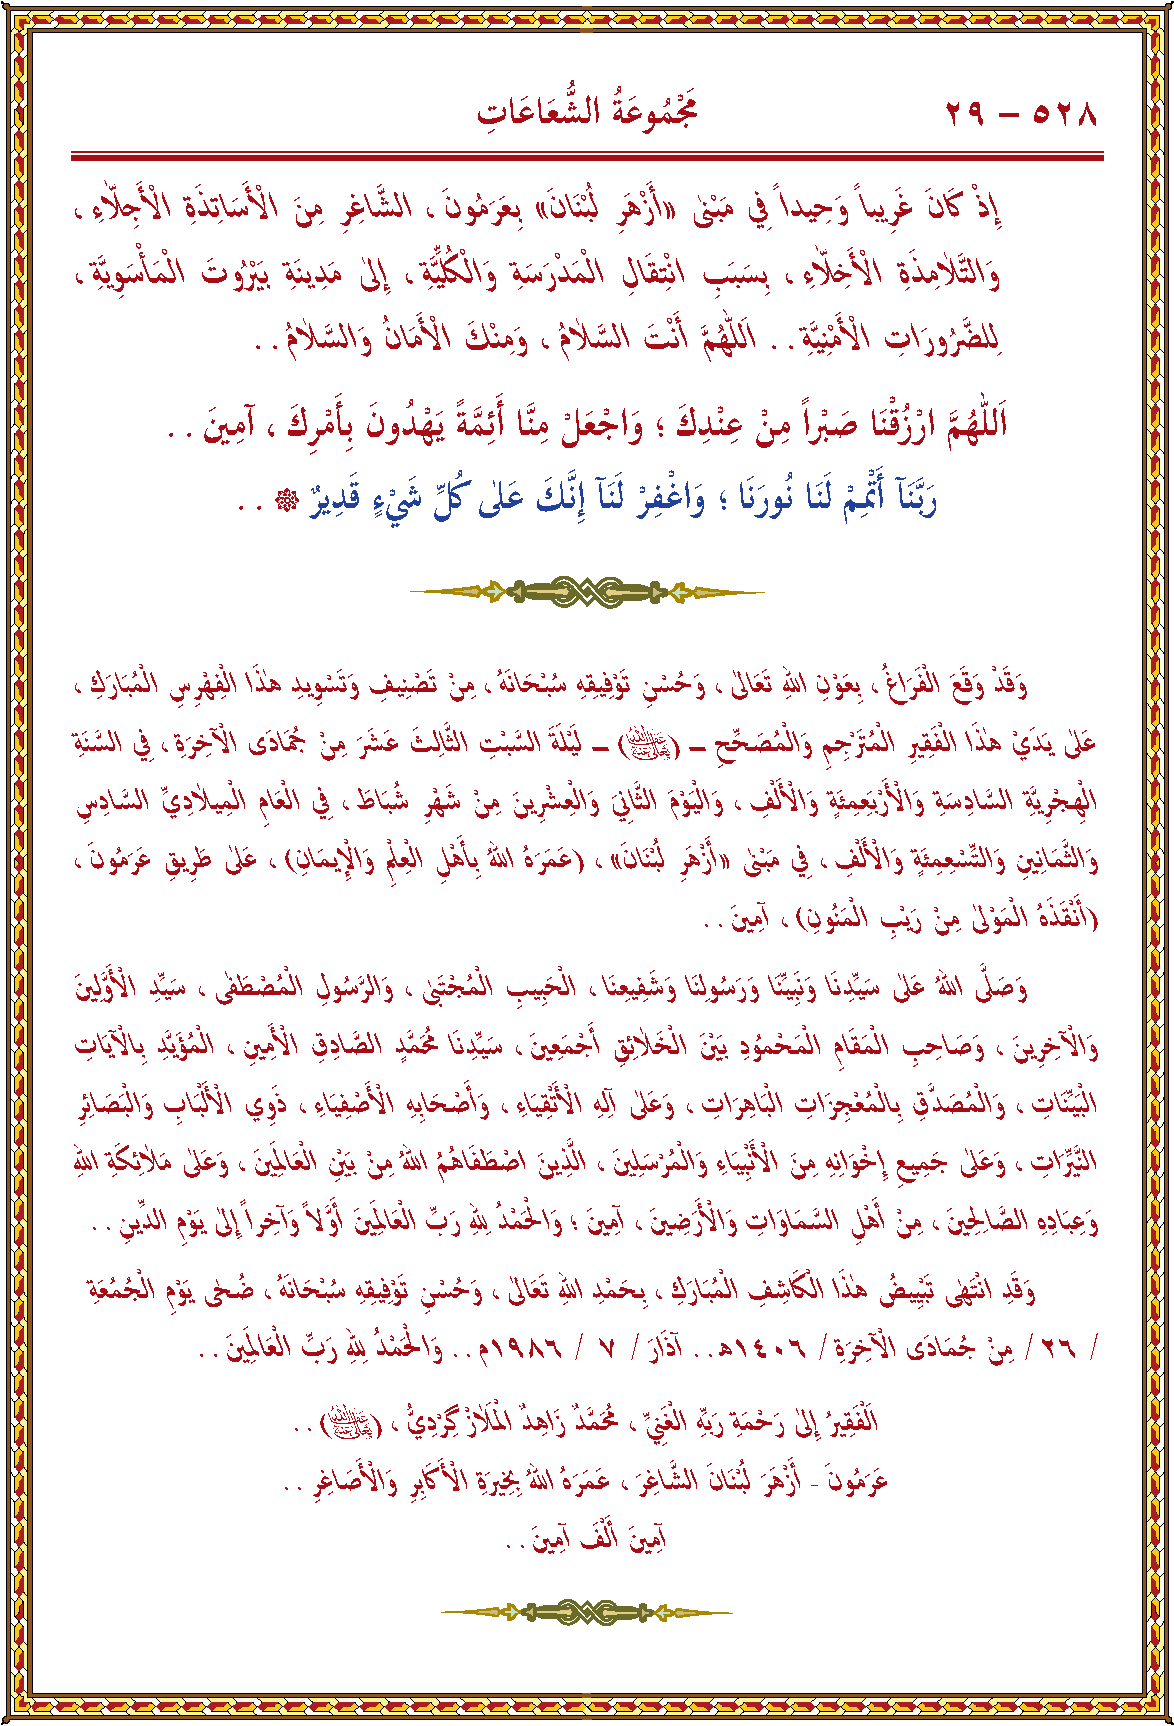 ٥٢٨ – ٢٩ مَجْمُوعَةُ الشُّعَاعَاتِ
إِذْ كَانَ غَرِيباً وَحِيداً فِي مَبْنٰى «أَزْهَرِ لُبْنَانَ» بِعَرَمُونَ ، الشَّاغِرِ مِنَ الْأَسَاتِذَةِ الْأَجِلَّاءِ ،
وَالتَّلَامِذَةِ الْأَخِلَّاءِ ، بِسَبَبِ انْتِقَالِ الْمَدْرَسَةِ وَالْكُلِّيَّةِ ، إِلٰى مَدِينَةِ بَيْرُوتَ الْمَأْسَوِيَّةِ ،
لِلضَّرُورَاتِ الْأَمْنِيَّةِ . . اَللّٰهُمَّ أَنْتَ السَّلَامُ ، وَمِنْكَ الْأَمَانُ وَالسَّلَامُ . .
اَللّٰهُمَّ ارْزُقْنَا صَبْراً مِنْ عِنْدِكَ ؛ وَاجْعَلْ مِنَّا أَئِمَّةً يَهْدُونَ بِأَمْرِكَ ، آمِينَ . .
رَبَّنَآ أَتْمِمْ لَنَا نُورَنَا ؛ وَاغْفِرْ لَنَآ إِنَّكَ عَلٰى كُلِّ شَيْءٍ قَدِيرٌ ۞ . .
وَقَدْ وَقَعَ الْفَرَاغُ ، بِعَوْنِ اللهِ تَعَالٰى ، وَحُسْنِ تَوْفِيقِهِ سُبْحَانَهُ ، مِنْ تَصْنِيفِ وَتَسْوِيدِ هٰذَا الْفِهْرِسِ الْمُبَارَكِ ،
عَلٰى يَدَيْ هٰذَا الْفَقِيرِ الْمُتَرْجِمِ وَالْمُصَحِّحِ – () – لَيْلَةَ السَّبْتِ الثَّالِثَ عَشَرَ مِنْ جُمَادَى الْآخِرَةِ ، فِي السَّنَةِ
الْهِجْرِيَّةِ السَّادِسَةِ وَالْأَرْبَعِمِئَةٍ وَالْأَلْفِ ، وَالْيَوْمَ الثَّانِيَ وَالْعِشْرِينَ مِنْ شَهْرِ شُبَاطَ ، فِي الْعَامِ الْمِيلَادِيِّ السَّادِسِ
وَالثَّمَانِينِ وَالتِّسْعِمِئَةٍ وَالْأَلْفِ ، فِي مَبْنٰى «أَزْهَرِ لُبْنَانَ» ، (عَمَرَهُ اللهُ بِأَهْلِ الْعِلْمِ وَالْإِيمَانِ) ، عَلٰى طَرِيقِ عَرَمُونَ ،
(أَنْقَذَهُ الْمَوْلٰى مِنْ رَيْبِ الْمَنُونِ) ، آمِينَ . .
وَصَلَّى اللهُ عَلٰى سَيِّدِنَا وَنَبِيِّنَا وَرَسُولِنَا وَشَفِيعِنَا ، الْحَبِيبِ الْمُجْتَبٰى ، وَالرَّسُولِ الْمُصْطَفٰى ، سَيِّدِ الْأَوَّلِينَ
وَالْآخِرِينَ ، وَصَاحِبِ الْمَقَامِ الْمَحْمُودِ بَيْنَ الْخَلَائِقِ أَجْمَعِينَ ، سَيِّدِنَا مُحَمَّدٍ الصَّادِقِ الْأَمِينِ ، الْمُؤَيَّدِ بِالْآيَاتِ
الْبَيِّنَاتِ ، وَالْمُصَدَّقِ بِالْمُعْجِزَاتِ الْبَاهِرَاتِ ، وَعَلٰى آلِهِ الْأَتْقِيَاءِ ، وَأَصْحَابِهِ الْأَصْفِيَاءِ ، ذَوِي الْأَلْبَابِ وَالْبَصَائِرِ
النَّيِّرَاتِ ، وَعَلٰى جَمِيعِ إِخْوَانِهِ مِنَ الْأَنْبِيَاءِ وَالْمُرْسَلِينَ ، الَّذِينَ اصْطَفَاهُمُ اللهُ مِنْ بَيْنِ الْعَالَمِينَ ، وَعَلٰى مَلَائِكَةِ اللهِ
وَعِبَادِهِ الصَّالِحِينَ ، مِنْ أَهْلِ السَّمَاوَاتِ وَالْأَرَضِينَ ، آمِينَ ؛ وَالْحَمْدُ لِلهِ رَبِّ الْعَالَمِينَ أَوَّلاً وَآخِراً إِلٰى يَوْمِ الدِّينِ . .
وَقَدِ انْتَهٰى تَبْيِيضُ هٰذَا الْكَاشِفِ الْمُبَارَكِ ، بِحَمْدِ اللهِ تَعَالٰى ، وَحُسْنِ تَوْفِيقِهِ سُبْحَانَهُ ، ضُحٰى يَوْمِ الْجُمُعَةِ
/ ٢٦ / مِنْ جُمَادَى الْآخِرَةِ / ١٤٠٦هـ . . آذَارَ / ٧ / ١٩٨٦م . . وَالْحَمْدُ لِلّٰهِ رَبِّ الْعَالَمِينَ . .
اَلْفَقِيرُ إِلٰى رَحْمَةِ رَبِّهِ الْغَنِيِّ ، مُحَمَّدٌ زَاهِدٌ الْمَلَازْكِرْدِيُّ ، () . .
عَرَمُونَ - أَزْهَرَ لُبْنَانَ الشَّاغِرَ ، عَمَرَهُ اللهُ بِخِيرَةِ الْأَكَابِرِ وَالْأَصَاغِرِ . .
آمِينَ أَلْفَ آمِينَ . .